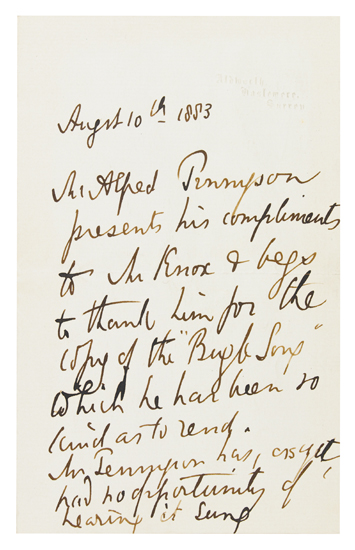 Aldworth,
Haslemere,
Surrey.
Augst 10th 1883
Mr Alfred Tennyson
presents his compliments
to Mr Knox & begs
to thank him for the
copy of the "Bugle Song"
which he has been so
kind as to send.
Mr Tennyson has, as yet
had no opportunity of
hearing it sung